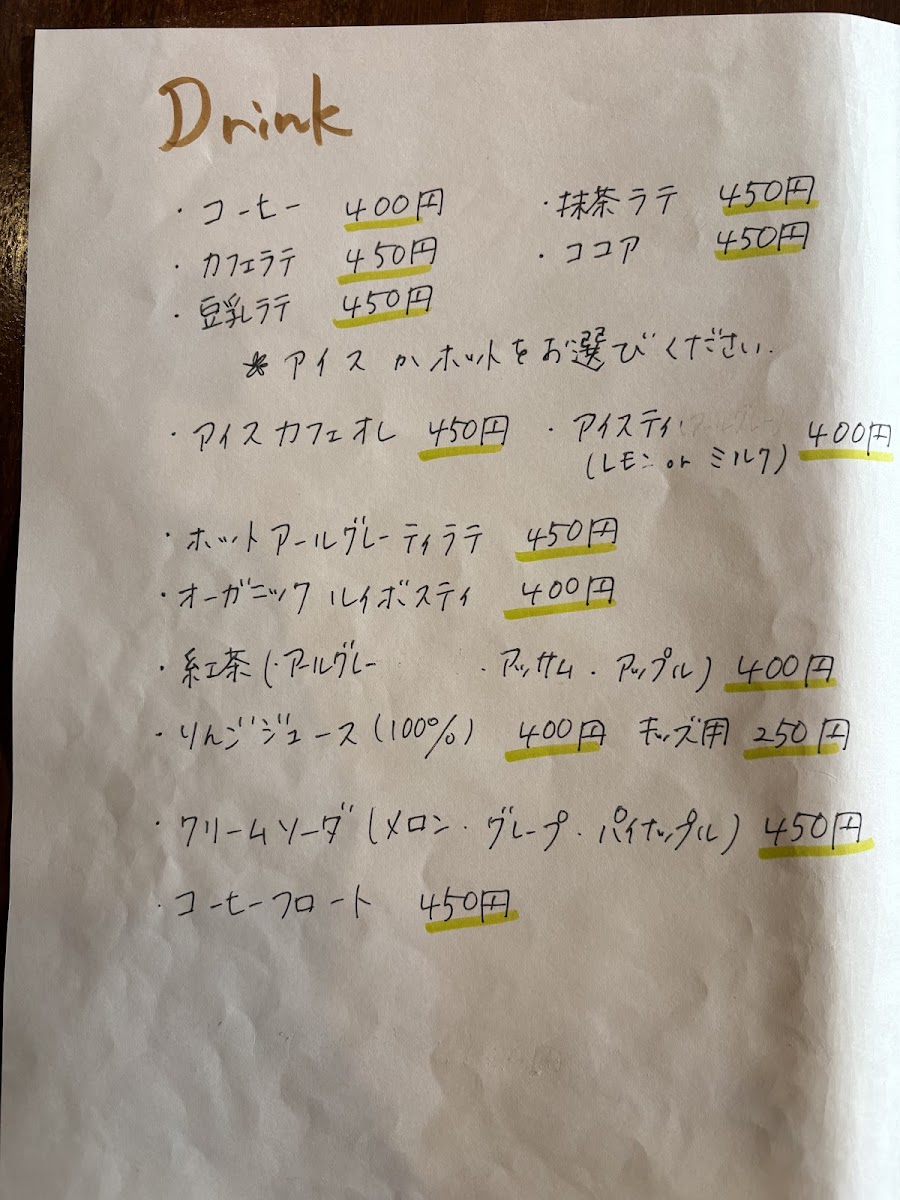 Drink
・コーヒー 400円 ・抹茶ラテ 450円
・カフェラテ 450円 ・ココア 450円
・豆乳ラテ 450円
＊アイスかホットをお選びください.
・アイスカフェオレ 450円 ・アイスティ 400円
(レモン or ミルク)
・ホットアールグレーティラテ 450円
・オーガニックルイボスティ 400円
・紅茶(・アールグレー ・アッサム・アップル) 400円
・りんごジュース(100%) 400円 キッズ用 250円
・クリームソーダ(メロン・グレープ・パイナップル) 450円
・コーヒーフロート 450円